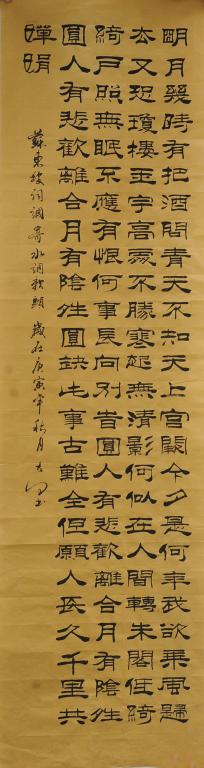 明月幾時有把酒問青天不知天上宮闕今夕是何年我欲乘風歸
去又恐瓊樓玉宇高處不勝寒起無清影何似在人間轉朱閣低綺
綺戶照無眠不應有恨何事長向別時圓人有悲歡離合月有陰晴
圓人有悲歡離合月有陰晴圓缺此事古難全但願人長久千里共
嬋娟
蘇東坡詞調寄水調歌頭 歲在庚寅年秋月 書